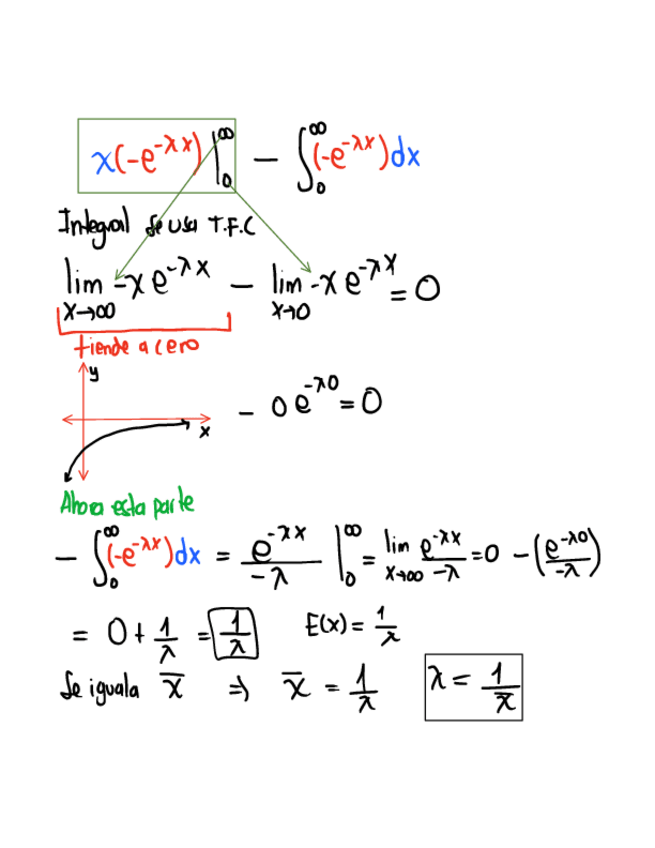 x(-e^{-λx})|_0^∞ - ∫_0^∞ (-e^{-λx})dx
Integral se usa T.F.C
lim_{x→∞} -x e^{-λx} - lim_{x→0} -x e^{-λx} = 0
tiende a cero
y
x
- 0 e^{-λ0} = 0
Ahora esta parte
- ∫_0^∞ (-e^{-λx})dx = e^{-λx}/-λ |_0^∞ = lim_{x→∞} e^{-λx}/-λ = 0 - (e^{-λ0}/-λ)
= 0 + 1/λ = 1/λ E(x) = 1/λ
Se iguala x̄ ⇒ x̄ = 1/λ λ = 1/x̄